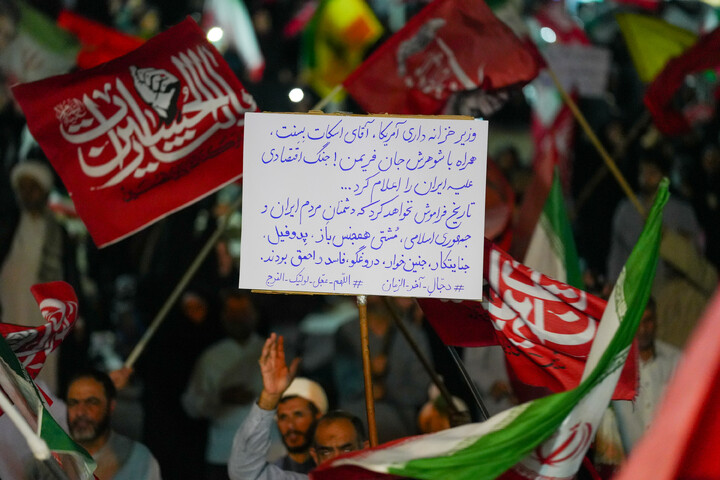 وزیر خزانه داری آمریکا، آقای اسکات بِسِنت،
همراه با شوهرش جان فریمن! جنگ اقتصادی
علیه ایران را اعلام کرد...
تاریخ فراموش نخواهد کرد که دشمنان مردم ایران و
جمهوری اسلامی، مُشتی همجنس باز. پدوفیل.
جنایتکار، جنین‌خوار، دروغگو، فاسد و احمق بودند.
#دجّال_آخر_الزمان #اللهم_عجل_لولیک_الفرج
یالثارات الحسین